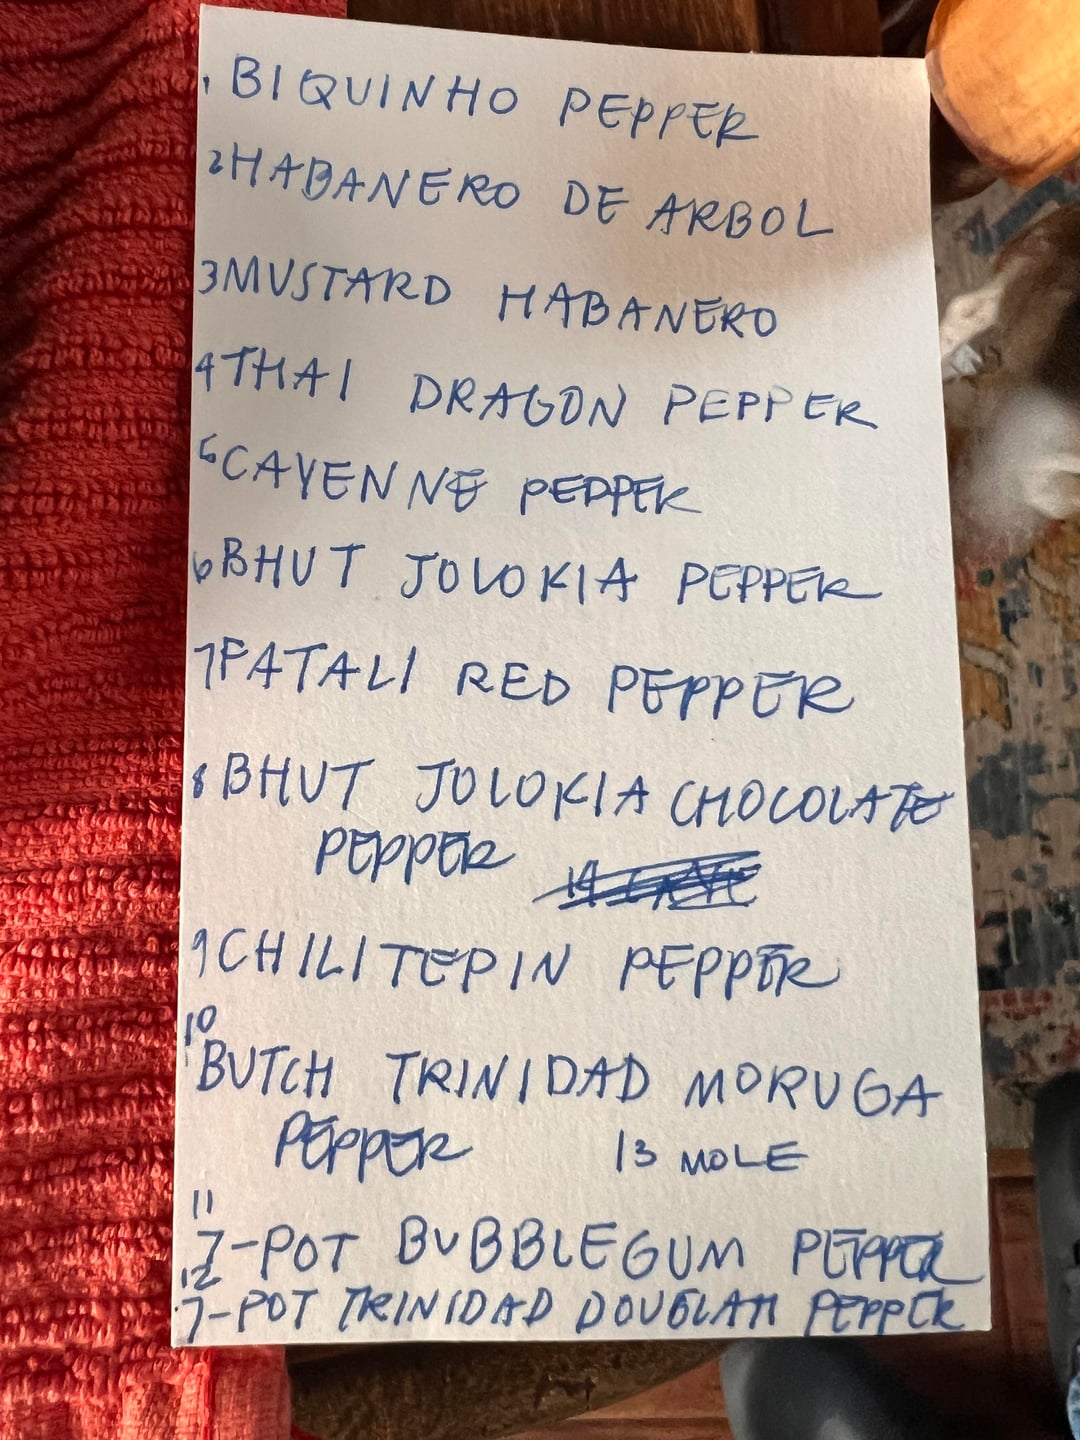 1 BIQUINHO PEPPER
2 HABANERO DE ARBOL
3 MUSTARD HABANERO
4 THAI DRAGON PEPPER
5 CAYENNE PEPPER
6 BHUT JOLOKIA PEPPER
7 FATALI RED PEPPER
8 BHUT JOLOKIA CHOCOLATE
PEPPER
9 CHILITEPIN PEPPER
10
BUTCH TRINIDAD MORUGA
PEPPER 13 MOLE
11
7-POT BUBBLEGUM PEPPER
12
7-POT TRINIDAD DOUGLAH PEPPER